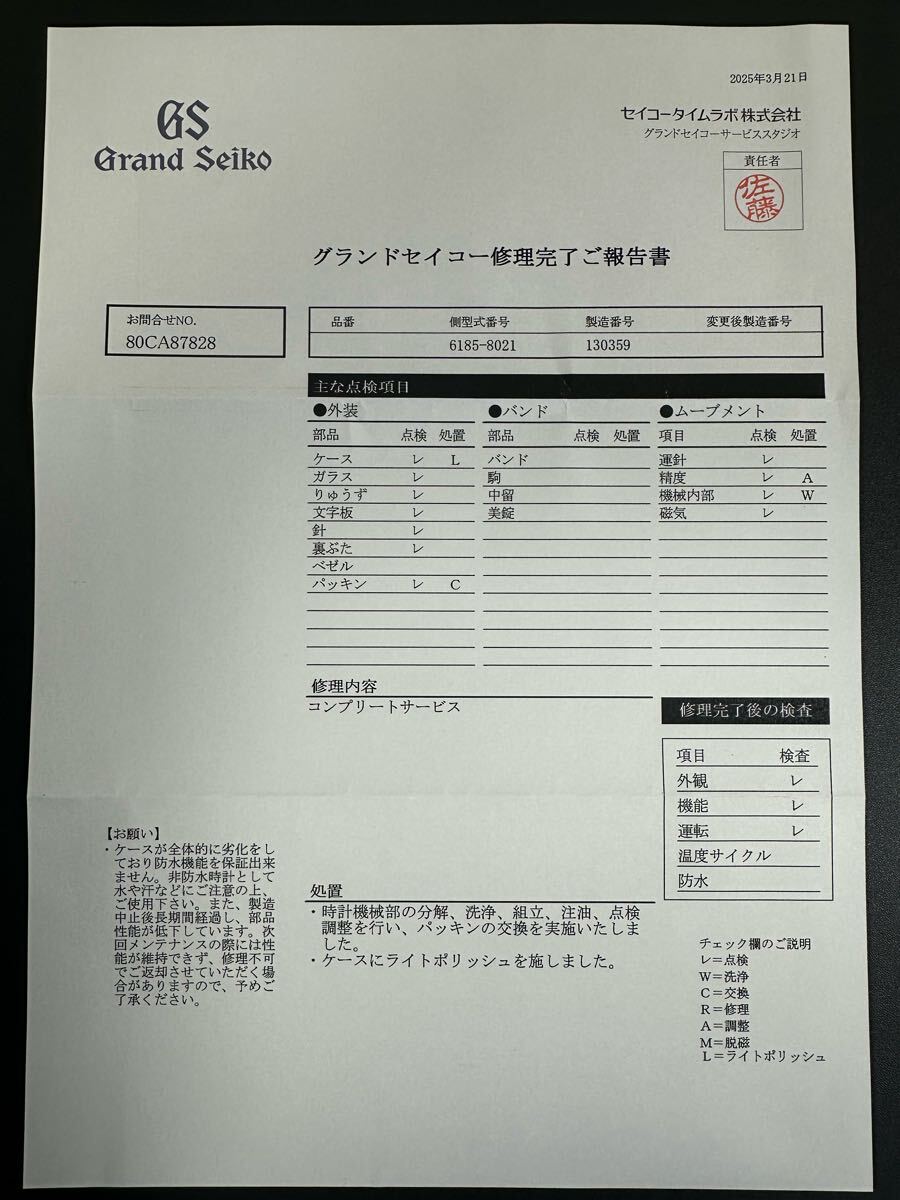 2025年3月21日
GS
Grand Seiko
セイコータイムラボ株式会社
グランドセイコーサービススタジオ
責任者
佐藤
グランドセイコー修理完了ご報告書
お問合せNO.
80CA87828
品番 側型式番号 製造番号 変更後製造番号
6185-8021 130359
主な点検項目
●外装 ●バンド ●ムーブメント
部品 点検 処置 部品 点検 処置 項目 点検 処置
ケース レ L バンド 運針 レ
ガラス レ 駒 精度 レ A
りゅうず レ 中留 機械内部 レ W
文字板 レ 美錠 磁気 レ
針 レ
裏ぶた レ
ベゼル
パッキン レ C
修理内容
コンプリートサービス
修理完了後の検査
項目 検査
外観 レ
機能 レ
運転 レ
温度サイクル
防水
【お願い】
・ケースが全体的に劣化をし
ており防水機能を保証出来
ません。非防水時計として
水や汗などにご注意の上、
ご使用下さい。また、製造
中止後長期間経過し、部品
性能が低下しています。次
回メンテナンスの際には性
能が維持できず、修理不可
でご返却させていただく場
合がありますので、予めご
了承ください。
処置
・時計機械部の分解、洗浄、組立、注油、点検
調整を行い、パッキンの交換を実施いたしま
した。
・ケースにライトポリッシュを施しました。
チェック欄のご説明
レ＝点検
W＝洗浄
C＝交換
R＝修理
A＝調整
M＝脱磁
L＝ライトポリッシュ